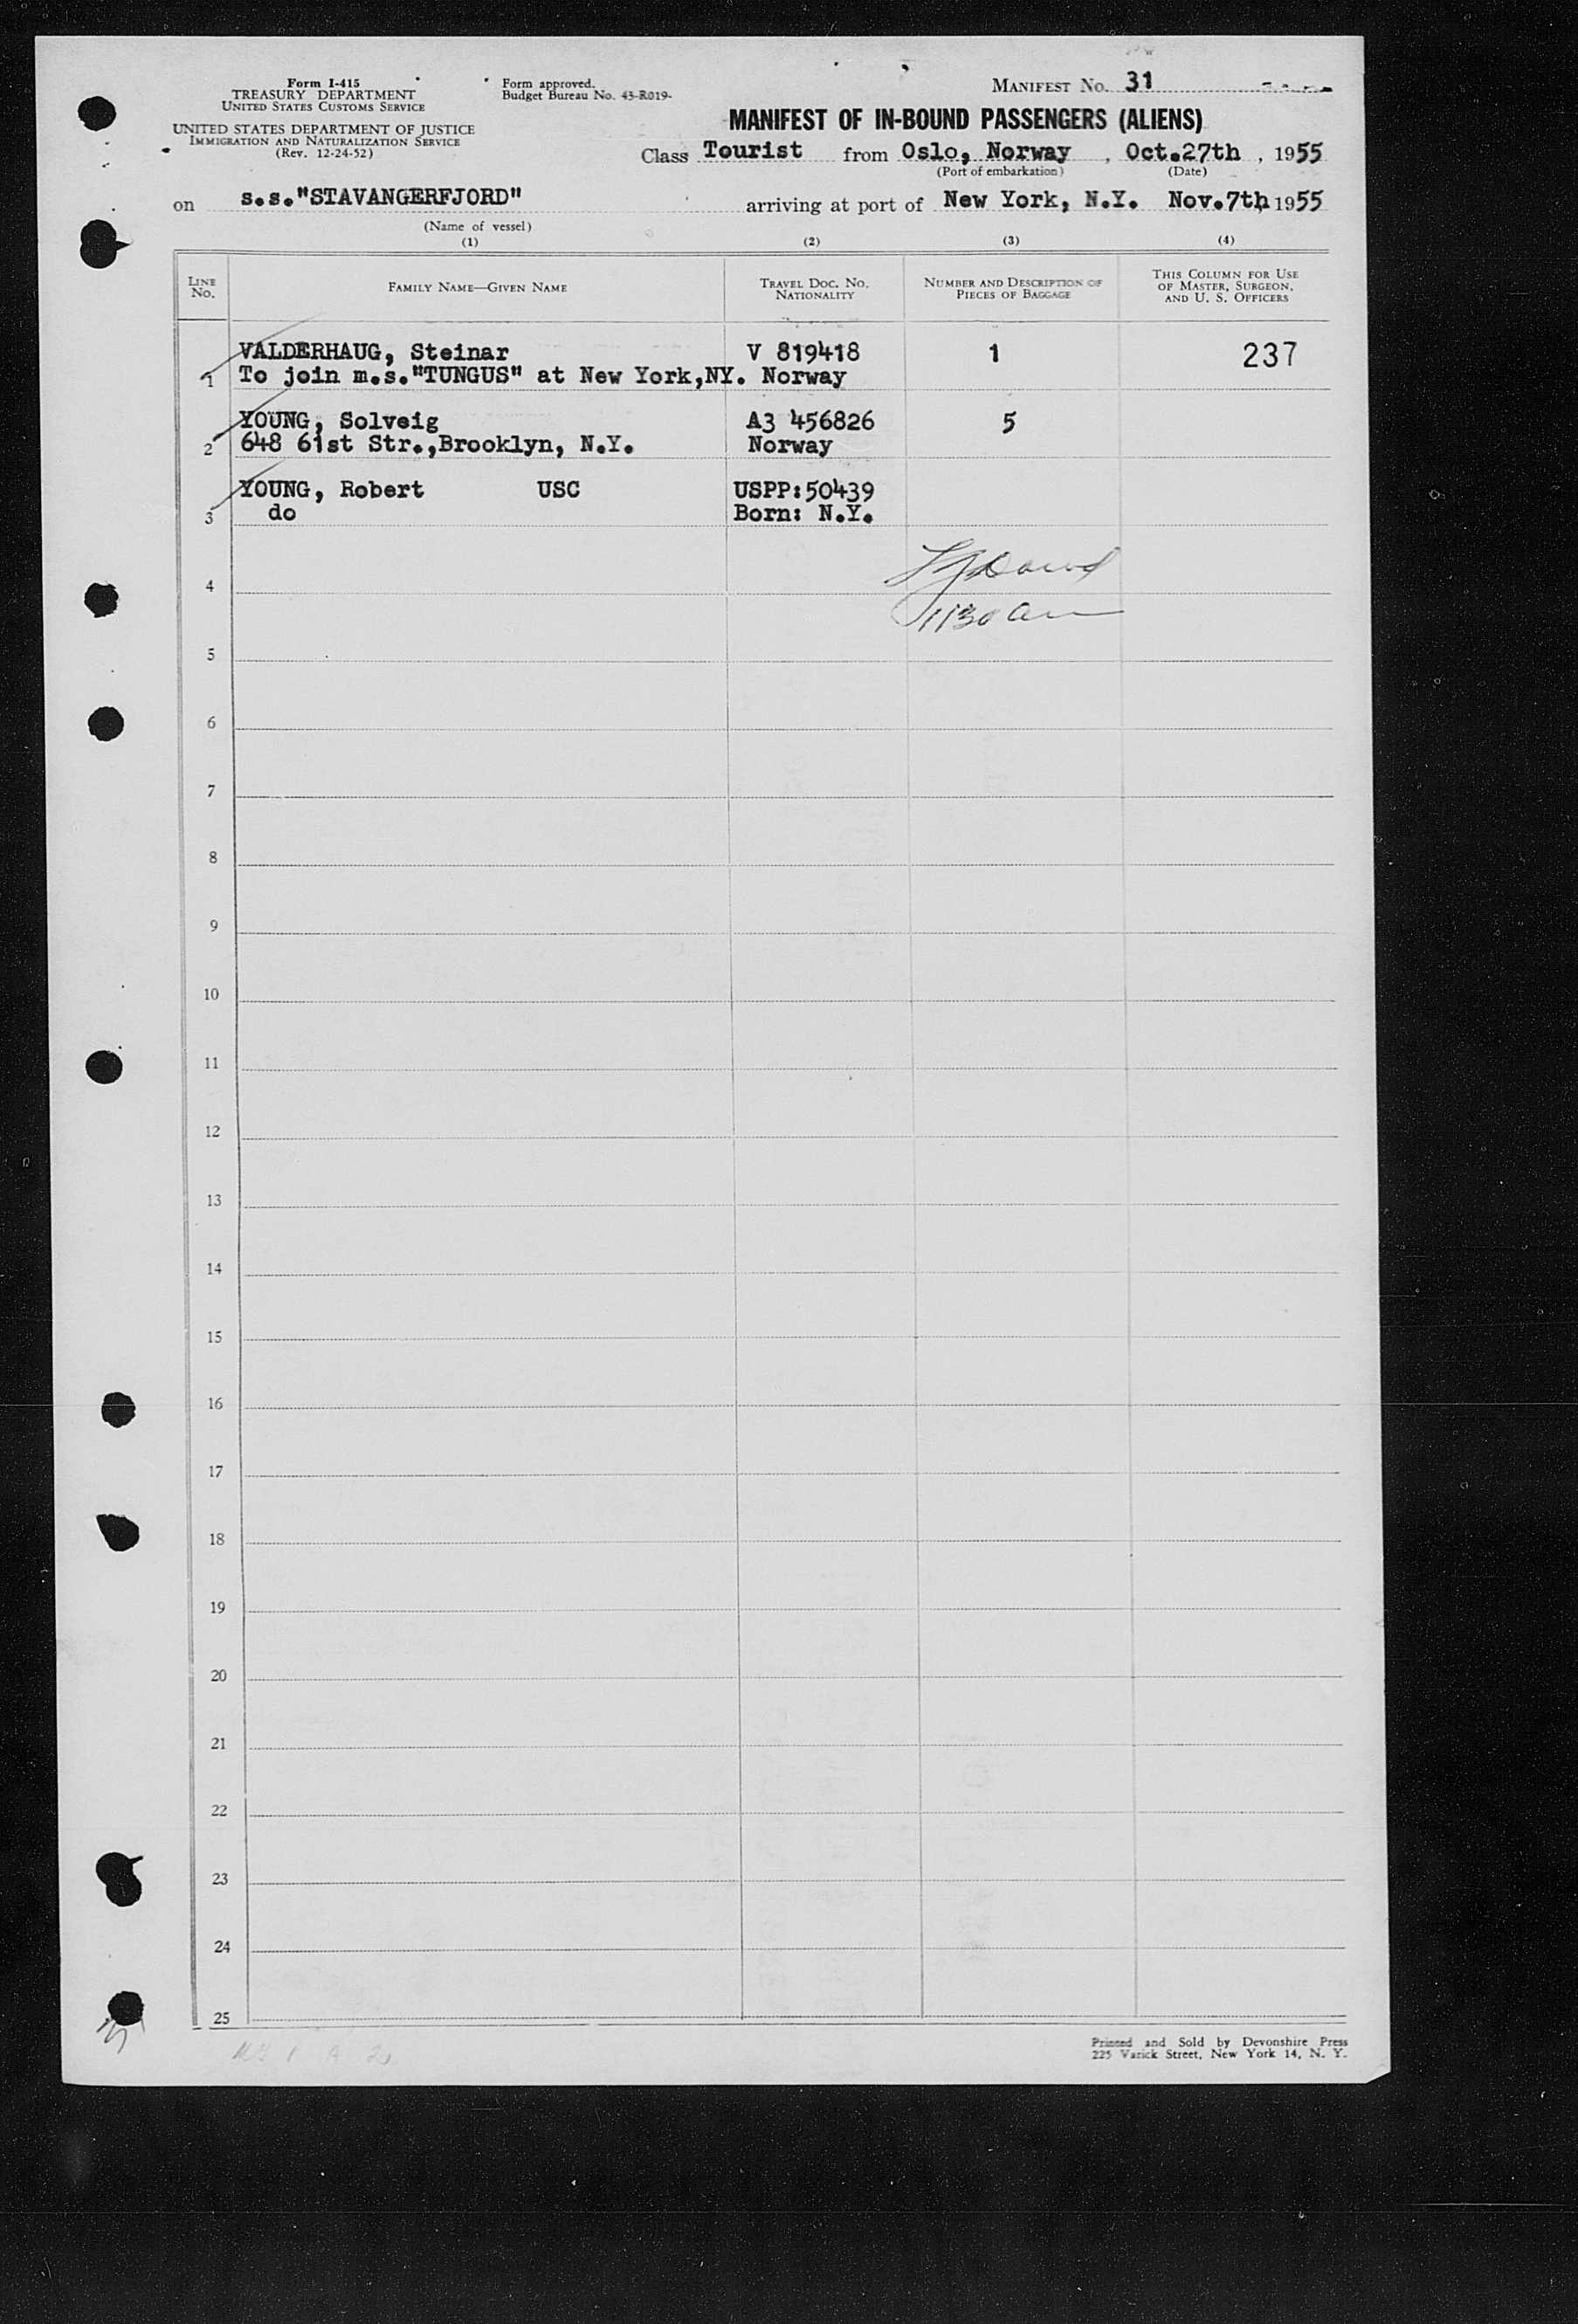 Form I-415
TREASURY DEPARTMENT
UNITED STATES CUSTOMS SERVICE
UNITED STATES DEPARTMENT OF JUSTICE
IMMIGRATION AND NATURALIZATION SERVICE
(Rev. 12-24-52)
Form approved.
Budget Bureau No. 43-R019-
MANIFEST NO. 31
MANIFEST OF IN-BOUND PASSENGERS (ALIENS)
Class Tourist from Oslo, Norway, Oct.27th, 1955
(Port of embarkation) (Date)
on s.s."STAVANGERFJORD" arriving at port of New York, N.Y. Nov.7th 1955
(Name of vessel)
(1) (2) (3) (4)
LINE NO. FAMILY NAME—GIVEN NAME TRAVEL DOC. NO. NATIONALITY NUMBER AND DESCRIPTION OF PIECES OF BAGGAGE THIS COLUMN FOR USE OF MASTER, SURGEON, AND U. S. OFFICERS
VALDERHAUG, Steinar V 819418 1 237
1 To join m.s."TUNGUS" at New York,NY. Norway
YOUNG, Solveig A3 456826 5
2 648 61st Str.,Brooklyn, N.Y. Norway
YOUNG, Robert USC USPP:50439
3 do Born: N.Y.
4
1130 am
5
6
7
8
9
10
11
12
13
14
15
16
17
18
19
20
21
22
23
24
25
Printed and Sold by Devonshire Press
225 Varick Street, New York 14, N. Y.